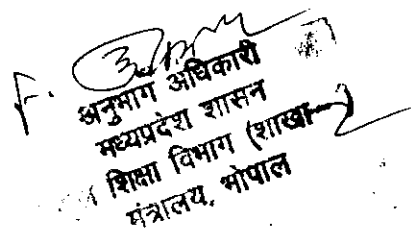 F.
अनुभाग अधिकारी
मध्यप्रदेश शासन
शिक्षा विभाग (शाखा-2)
मंत्रालय, भोपाल